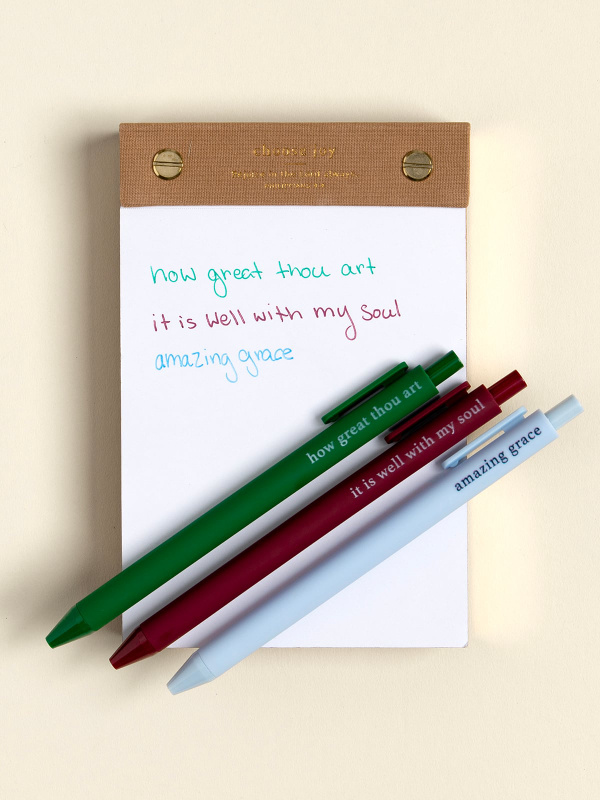 choose joy
how great thou art
it is well with my soul
amazing grace
how great thou art
it is well with my soul
amazing grace